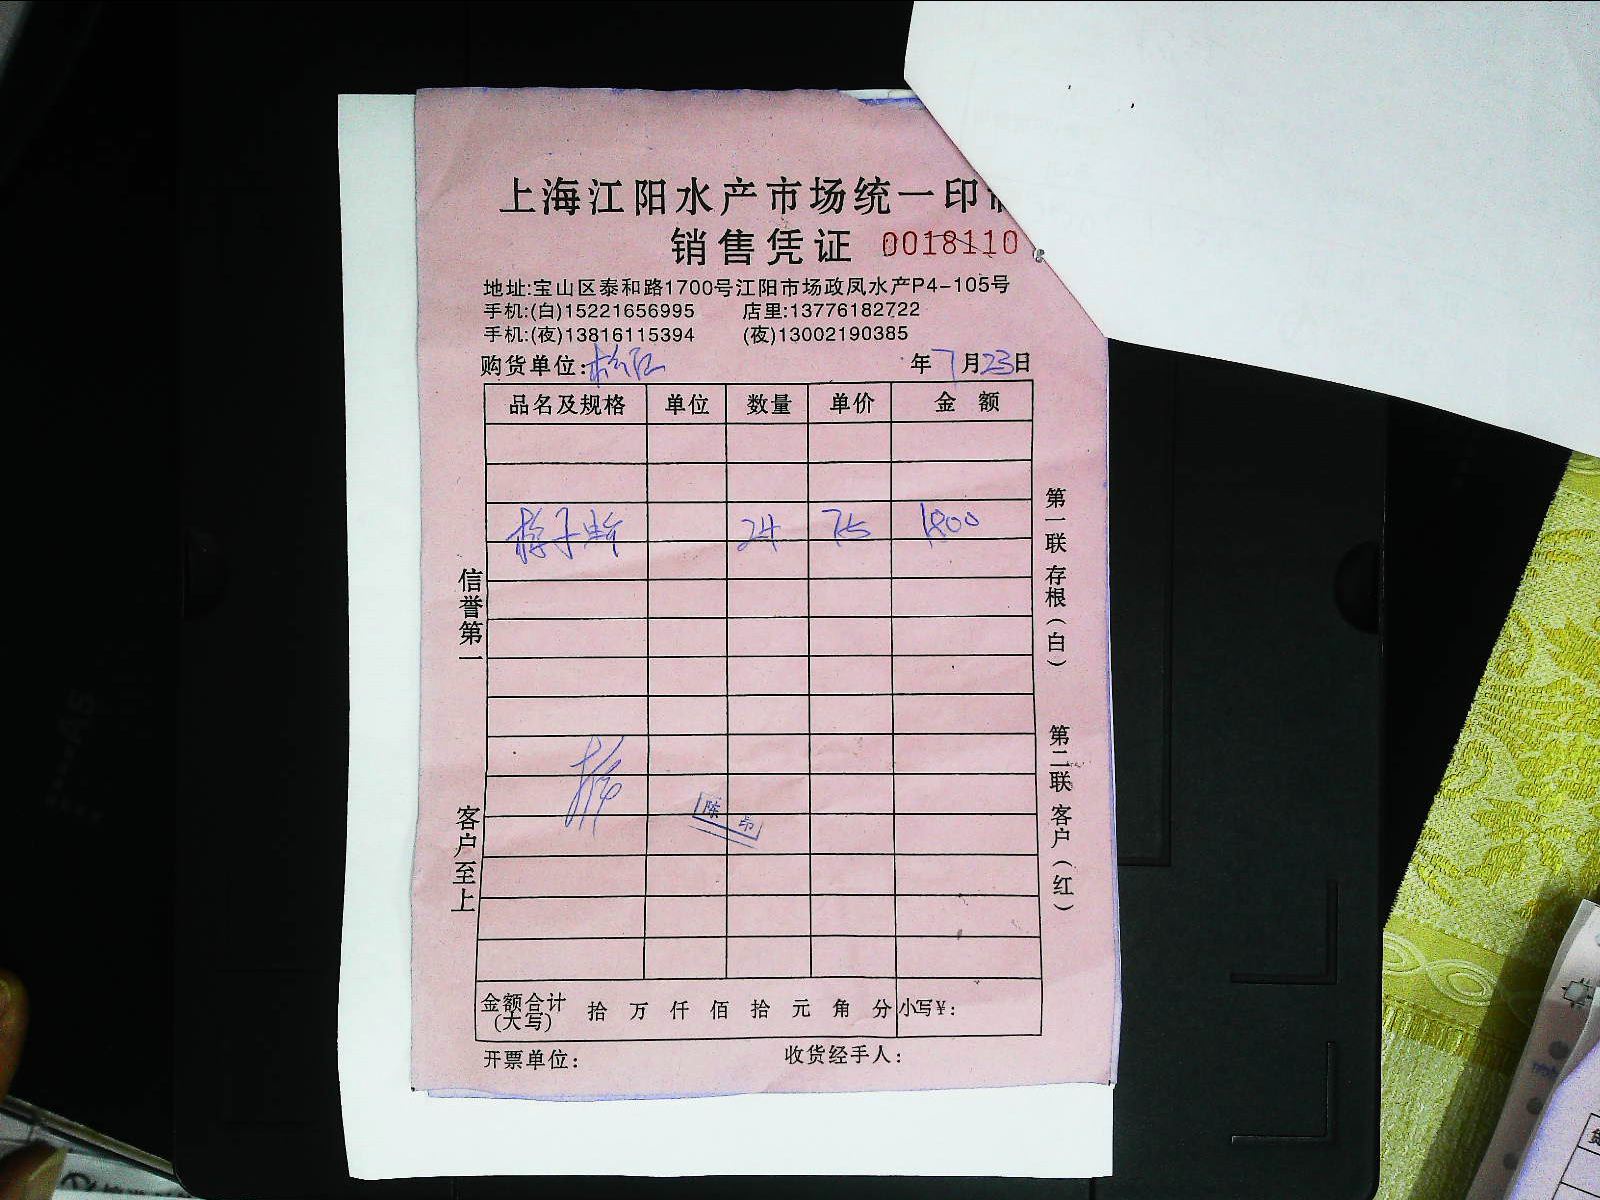 上海江阳水产市场统一印
销售凭证 0018110
地址:宝山区泰和路1700号江阳市场政凤水产P4-105号
手机:(白)15221656995 店里:13776182722
手机:(夜)13816115394 (夜)13002190385
购货单位: 年7月23日
品名及规格 单位 数量 单价 金 额
24 75 1800
信誉第一
客户至上
第一联 存根(白)
第二联 客户(红)
陈 印
金额合计(大写) 拾 万 仟 佰 拾 元 角 分 小写¥:
开票单位: 收货经手人: